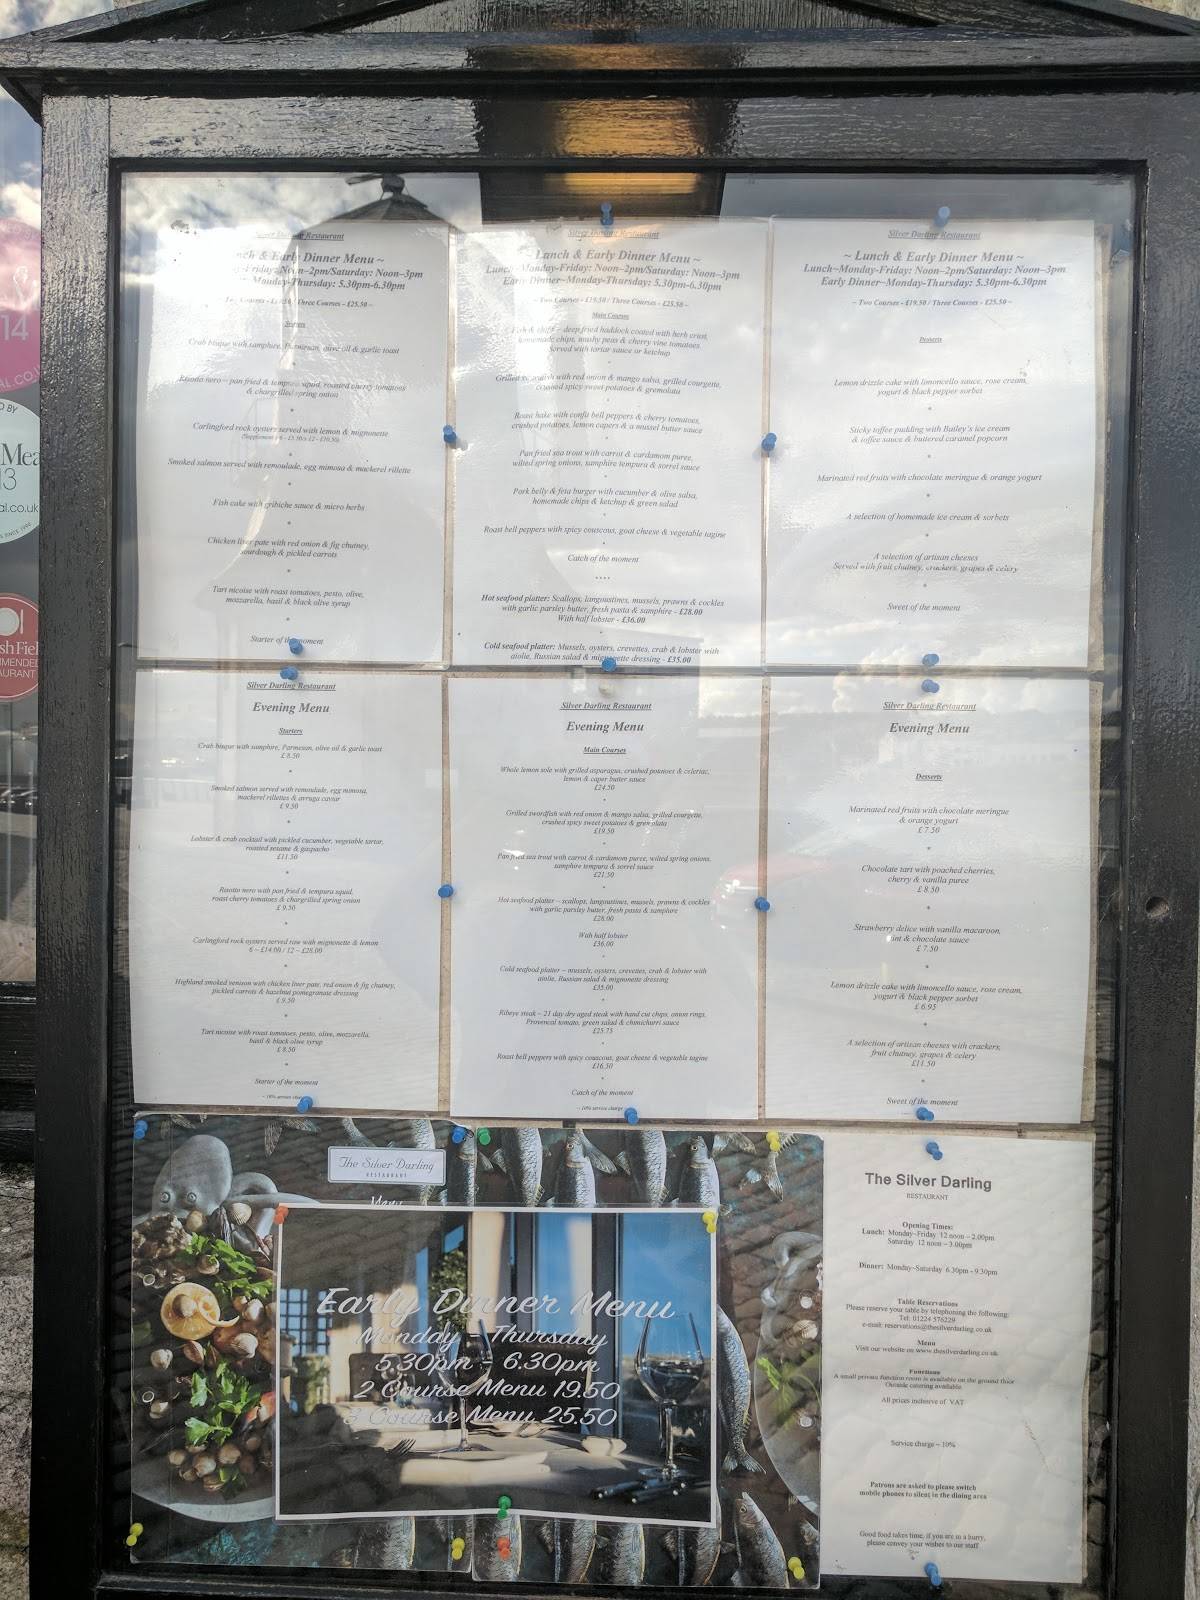 Silver Darling Restaurant
& Early Dinner Menu ~
Noon~2pm/Saturday: Noon~3pm
Monday-Thursday: 5.30pm-6.30pm
Three Courses - £25.50 ~
Starters
Crab bisque with samphire, Parmesan, olive oil & garlic toast
Risotto nero – pan fried & tempura squid, roasted cherry tomatoes
& chargrilled spring onion
Carlingford rock oysters served with lemon & mignonette
Smoked salmon served with remoulade, egg mimosa & mackerel rillette
Fish cake with gribiche sauce & micro herbs
Chicken liver pate with red onion & fig chutney,
sourdough & pickled carrots
Tart nicoise with roast tomatoes, pesto, olive,
mozzarella, basil & black olive syrup
Starter of the moment
Silver Darling Restaurant
~ Lunch & Early Dinner Menu ~
Lunch~Monday-Friday: Noon~2pm/Saturday: Noon~3pm
Early Dinner~Monday-Thursday: 5.30pm-6.30pm
~ Two Courses - £19.50 / Three Courses - £25.50 ~
Main Courses
Fish & chips – deep fried haddock coated with herb crust,
homemade chips, mushy peas & cherry vine tomatoes
Served with tartar sauce or ketchup
Grilled swordfish with red onion & mango salsa, grilled courgette,
crushed spicy sweet potatoes & gremolata
Roast hake with confit bell peppers & cherry tomatoes,
crushed potatoes, lemon capers & a mussel butter sauce
Pan fried sea trout with carrot & cardamom puree,
wilted spring onions, samphire tempura & sorrel sauce
Pork belly & feta burger with cucumber & olive salsa,
homemade chips & ketchup & green salad
Roast bell peppers with spicy couscous, goat cheese & vegetable tagine
Catch of the moment
****
Hot seafood platter: Scallops, langoustines, mussels, prawns & cockles
with garlic parsley butter, fresh pasta & samphire - £28.00
With half lobster - £36.00
Cold seafood platter: Mussels, oysters, crevettes, crab & lobster with
aiolie, Russian salad & mignonette dressing - £35.00
Silver Darling Restaurant
~ Lunch & Early Dinner Menu ~
Lunch~Monday-Friday: Noon~2pm/Saturday: Noon~3pm
Early Dinner~Monday-Thursday: 5.30pm-6.30pm
~ Two Courses - £19.50 / Three Courses - £25.50 ~
Desserts
Lemon drizzle cake with limoncello sauce, rose cream,
yogurt & black pepper sorbet
Sticky toffee pudding with Bailey's ice cream
& toffee sauce & buttered caramel popcorn
Marinated red fruits with chocolate meringue & orange yogurt
A selection of homemade ice cream & sorbets
A selection of artisan cheeses
Served with fruit chutney, crackers, grapes & celery
Sweet of the moment
Silver Darling Restaurant
Evening Menu
Starters
Crab bisque with samphire, Parmesan, olive oil & garlic toast
£ 8.50
Smoked salmon served with remoulade, egg mimosa,
mackerel rillettes & avruga caviar
£ 9.50
Lobster & crab cocktail with pickled cucumber, vegetable tartar,
roasted sesame & gaspacho
£11.50
Risotto nero with pan fried & tempura squid,
roast cherry tomatoes & chargrilled spring onion
£ 9.50
Carlingford rock oysters served raw with mignonette & lemon
6 ~ £14.00 / 12 ~ £28.00
Highland smoked venison with chicken liver pate, red onion & fig chutney,
pickled carrots & hazelnut pomegranate dressing
£ 9.50
Tart nicoise with roast tomatoes, pesto, olive, mozzarella,
basil & black olive syrup
£ 8.50
Starter of the moment
~ 10% service
Silver Darling Restaurant
Evening Menu
Main Courses
Whole lemon sole with grilled asparagus, crushed potatoes & celeriac,
lemon & caper butter sauce
£24.50
Grilled swordfish with red onion & mango salsa, grilled courgette,
crushed spicy sweet potatoes & gremolata
£19.50
Pan fried sea trout with carrot & cardamom puree, wilted spring onions,
samphire tempura & sorrel sauce
£21.50
Hot seafood platter ~ scallops, langoustines, mussels, prawns & cockles
with garlic parsley butter, fresh pasta & samphire
£28.00
With half lobster
£36.00
Cold seafood platter ~ mussels, oysters, crevettes, crab & lobster with
aiolie, Russian salad & mignonette dressing
£35.00
Ribeye steak ~ 21 day dry aged steak with hand cut chips, onion rings,
Provencal tomato, green salad & chimichurri sauce
£25.75
Roast bell peppers with spicy couscous, goat cheese & vegetable tagine
£16.50
Catch of the moment
~ 10% service charge
Silver Darling Restaurant
Evening Menu
Desserts
Marinated red fruits with chocolate meringue
& orange yogurt
£ 7.50
Chocolate tart with poached cherries,
cherry & vanilla puree
£ 8.50
Strawberry delice with vanilla macaroon,
mint & chocolate sauce
£ 7.50
Lemon drizzle cake with limoncello sauce, rose cream,
yogurt & black pepper sorbet
£ 6.95
A selection of artisan cheeses with crackers,
fruit chutney, grapes & celery
£11.50
Sweet of the moment
The Silver Darling
RESTAURANT
Menu
Early Dinner Menu
Monday - Thursday
5.30pm - 6.30pm
2 Course Menu 19.50
3 Course Menu 25.50
The Silver Darling
RESTAURANT
Opening Times:
Lunch: Monday~Friday 12 noon ~ 2.00pm
Saturday 12 noon ~ 3.00pm
Dinner: Monday~Saturday 6.30pm - 9.30pm
Table Reservations
Please reserve your table by telephoning the following:
Tel: 01224 576229
e-mail: reservations@thesilverdarling.co.uk
Menu
Visit our website on www.thesilverdarling.co.uk
Functions
A small private function room is available on the ground floor
Outside catering available.
All prices inclusive of VAT
Service charge ~ 10%
Patrons are asked to please switch
mobile phones to silent in the dining area
Good food takes time, if you are in a hurry,
please convey your wishes to our staff
14